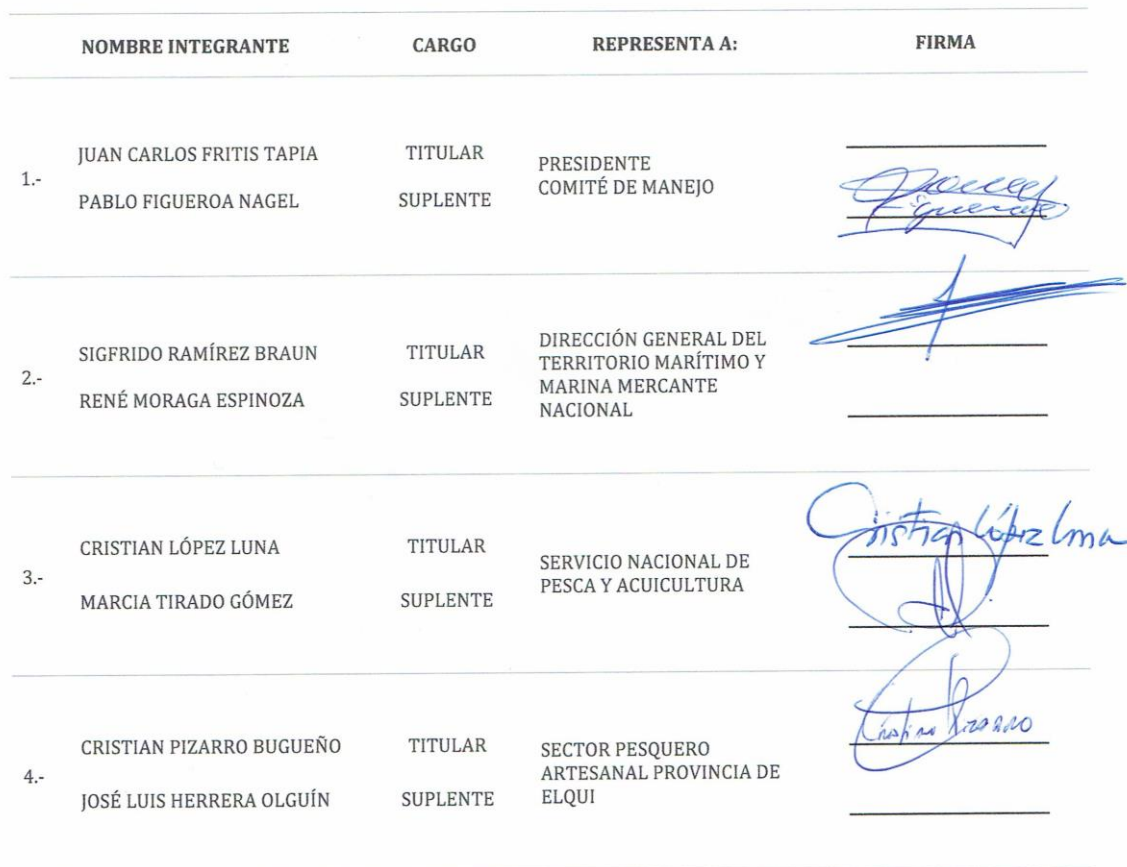 NOMBRE INTEGRANTE CARGO REPRESENTA A: FIRMA
1.-
JUAN CARLOS FRITIS TAPIA TITULAR
PABLO FIGUEROA NAGEL SUPLENTE
PRESIDENTE
COMITÉ DE MANEJO
Figueroa
2.-
SIGFRIDO RAMÍREZ BRAUN TITULAR
RENÉ MORAGA ESPINOZA SUPLENTE
DIRECCIÓN GENERAL DEL
TERRITORIO MARÍTIMO Y
MARINA MERCANTE
NACIONAL
3.-
CRISTIAN LÓPEZ LUNA TITULAR
MARCIA TIRADO GÓMEZ SUPLENTE
SERVICIO NACIONAL DE
PESCA Y ACUICULTURA
Cristian López Luna
4.-
CRISTIAN PIZARRO BUGUEÑO TITULAR
JOSÉ LUIS HERRERA OLGUÍN SUPLENTE
SECTOR PESQUERO
ARTESANAL PROVINCIA DE
ELQUI
Cristian Pizarro